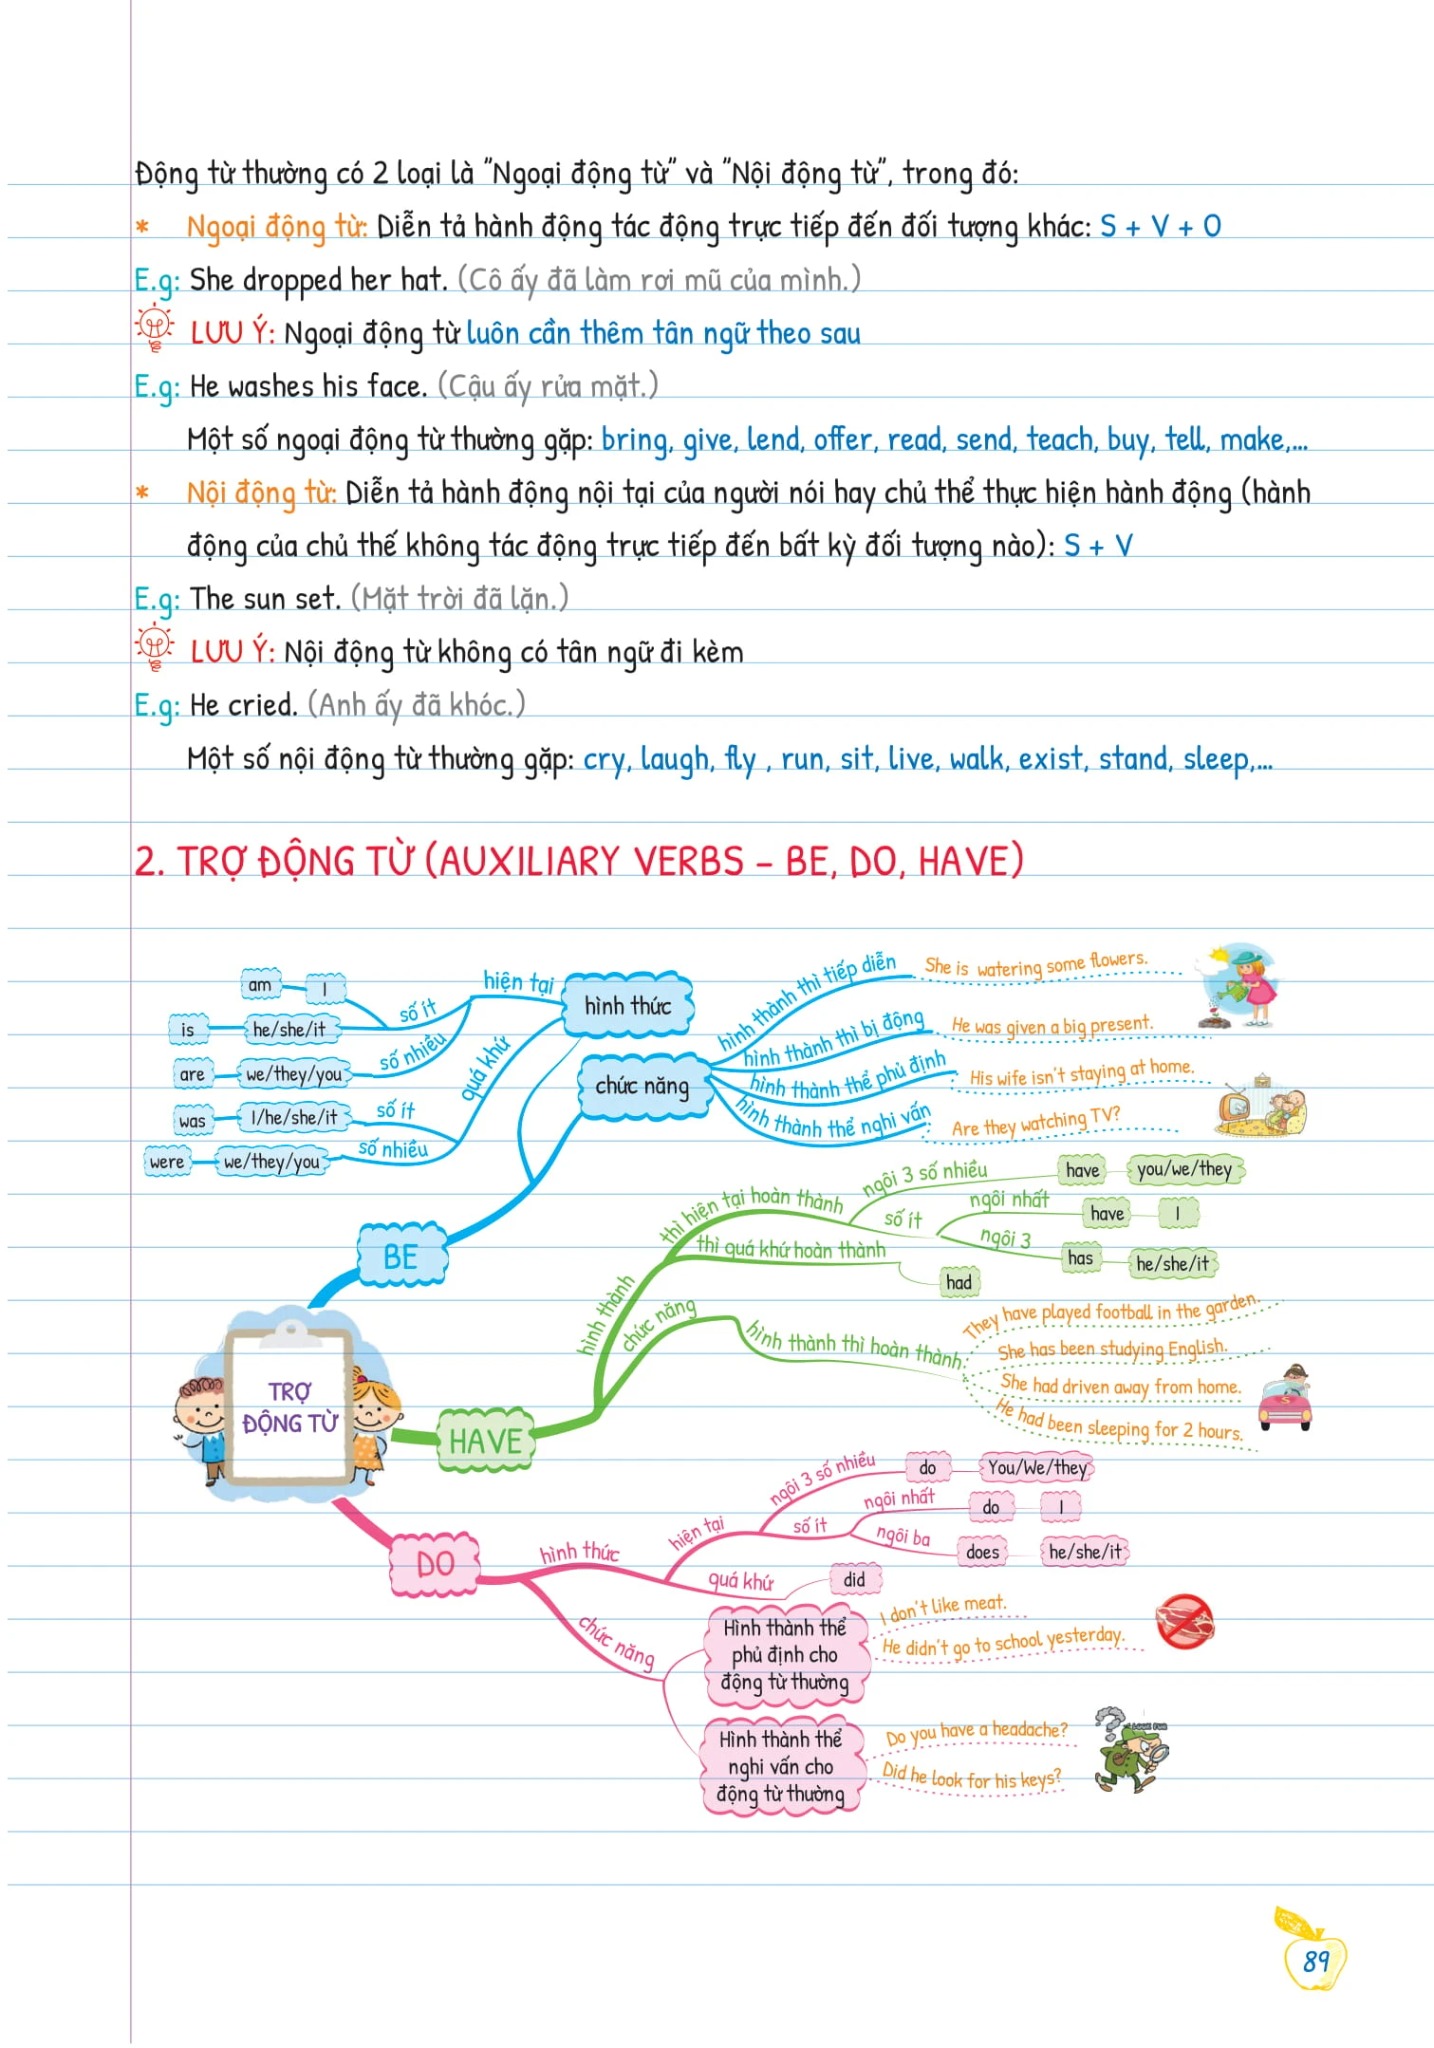 Động từ thường có 2 loại là "Ngoại động từ" và "Nội động từ", trong đó:
* Ngoại động từ: Diễn tả hành động tác động trực tiếp đến đối tượng khác: S + V + O
E.g: She dropped her hat. (Cô ấy đã làm rơi mũ của mình.)
LƯU Ý: Ngoại động từ luôn cần thêm tân ngữ theo sau
E.g: He washes his face. (Cậu ấy rửa mặt.)
Một số ngoại động từ thường gặp: bring, give, lend, offer, read, send, teach, buy, tell, make,...
* Nội động từ: Diễn tả hành động nội tại của người nói hay chủ thể thực hiện hành động (hành
động của chủ thế không tác động trực tiếp đến bất kỳ đối tượng nào): S + V
E.g: The sun set. (Mặt trời đã lặn.)
LƯU Ý: Nội động từ không có tân ngữ đi kèm
E.g: He cried. (Anh ấy đã khóc.)
Một số nội động từ thường gặp: cry, laugh, fly , run, sit, live, walk, exist, stand, sleep,...
2. TRỢ ĐỘNG TỪ (AUXILIARY VERBS – BE, DO, HAVE)
TRỢ
ĐỘNG TỪ
BE
hình thức
hiện tại
số ít
am
I
is
he/she/it
số nhiều
are
we/they/you
quá khứ
số ít
was
I/he/she/it
số nhiều
were
we/they/you
chức năng
hình thành thì tiếp diễn
She is watering some flowers.
hình thành thì bị động
He was given a big present.
hình thành thể phủ định
His wife isn't staying at home.
hình thành thể nghi vấn
Are they watching TV?
HAVE
hình thành
thì hiện tại hoàn thành
ngôi 3 số nhiều
have
you/we/they
số ít
ngôi nhất
have
I
ngôi 3
has
he/she/it
thì quá khứ hoàn thành
had
chức năng
hình thành thì hoàn thành
They have played football in the garden.
She has been studying English.
She had driven away from home.
He had been sleeping for 2 hours.
DO
hình thức
hiện tại
ngôi 3 số nhiều
do
You/We/they
số ít
ngôi nhất
do
I
ngôi ba
does
he/she/it
quá khứ
did
chức năng
Hình thành thể
phủ định cho
động từ thường
I don't like meat.
He didn't go to school yesterday.
Hình thành thể
nghi vấn cho
động từ thường
Do you have a headache?
Did he look for his keys?
89